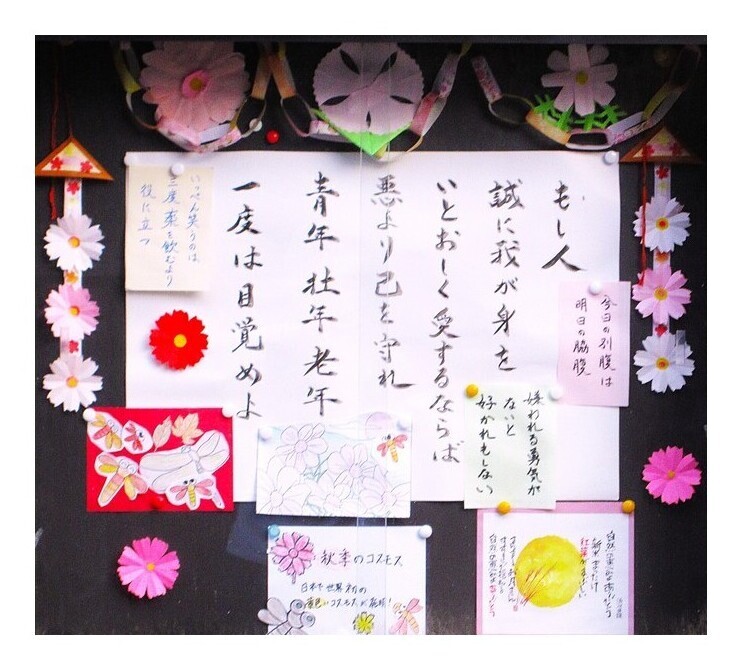 もし人
誠に我が身を
いとおしく愛するならば
悪より己を守れ
青年壮年老年
一度は目覚めよ
今日の別腹は
明日の脇腹
いっぺん笑うのは
三度薬を飲むより
役に立つ
嫌われる勇気が
ないと
好かれもしない
秋季のコスモス
日本で世界初の
コスモスが
新米まつたけ